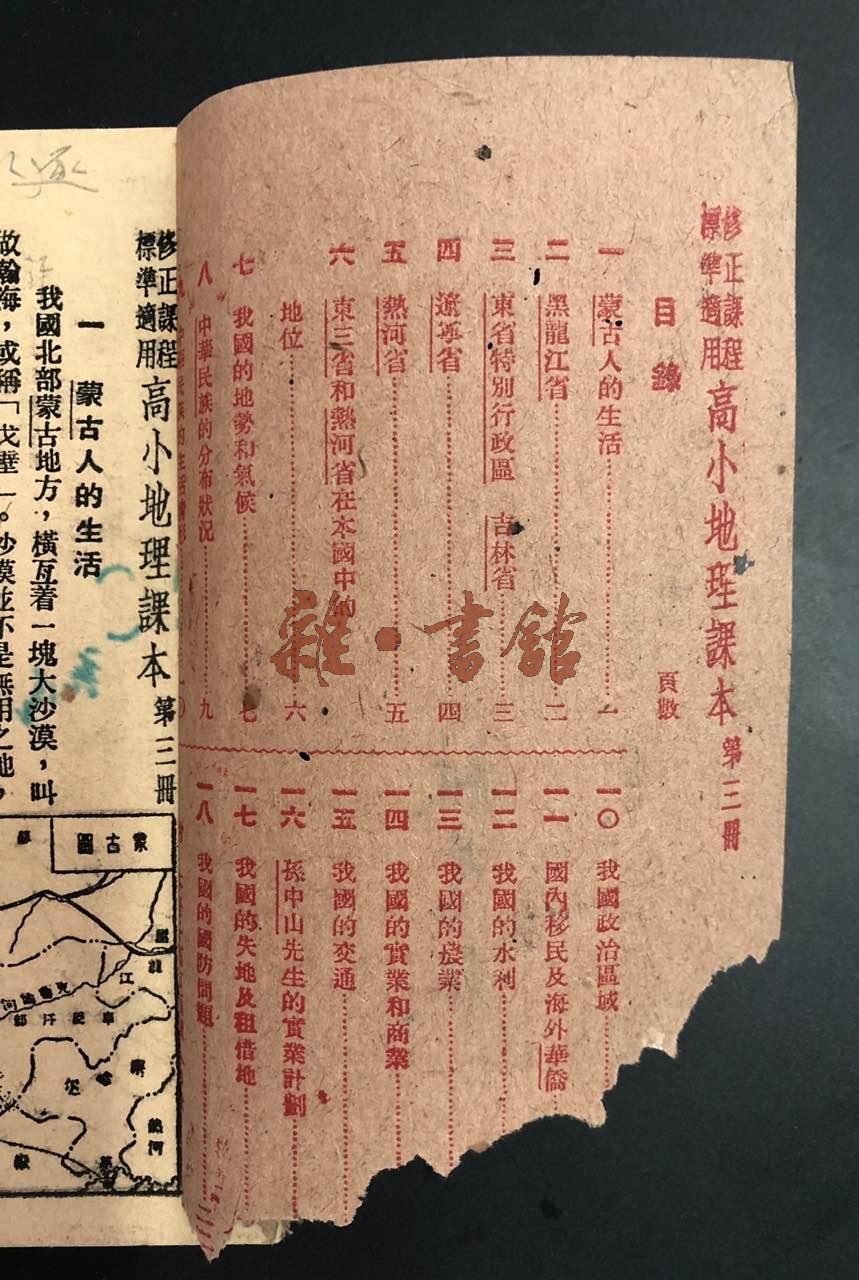 修正課程標準適用 高小地理課本 第三冊
目錄 頁數
一 蒙古人的生活 一
二 黑龍江省 二
三 東省特別行政區 吉林省 三
四 遼寧省 四
五 熱河省 五
六 東三省和熱河省在本國中的
地位 六
七 我國的地勢和氣候 七
八 中華民族的分布狀況 九
一〇 我國政治區域
一一 國內移民及海外華僑
一二 我國的水利
一三 我國的農業
一四 我國的實業和商業
一五 我國的交通
一六 孫中山先生的實業計劃
一七 我國的失地及租借地
一八 我國的國防問題
雜·書館
修正課程標準適用 高小地理課本 第三冊
一 蒙古人的生活
我國北部蒙古地方，橫亙着一塊大沙漠，叫
故瀚海，或稱「戈壁」。沙漠並不是無用之地，
蒙古圖
熱河